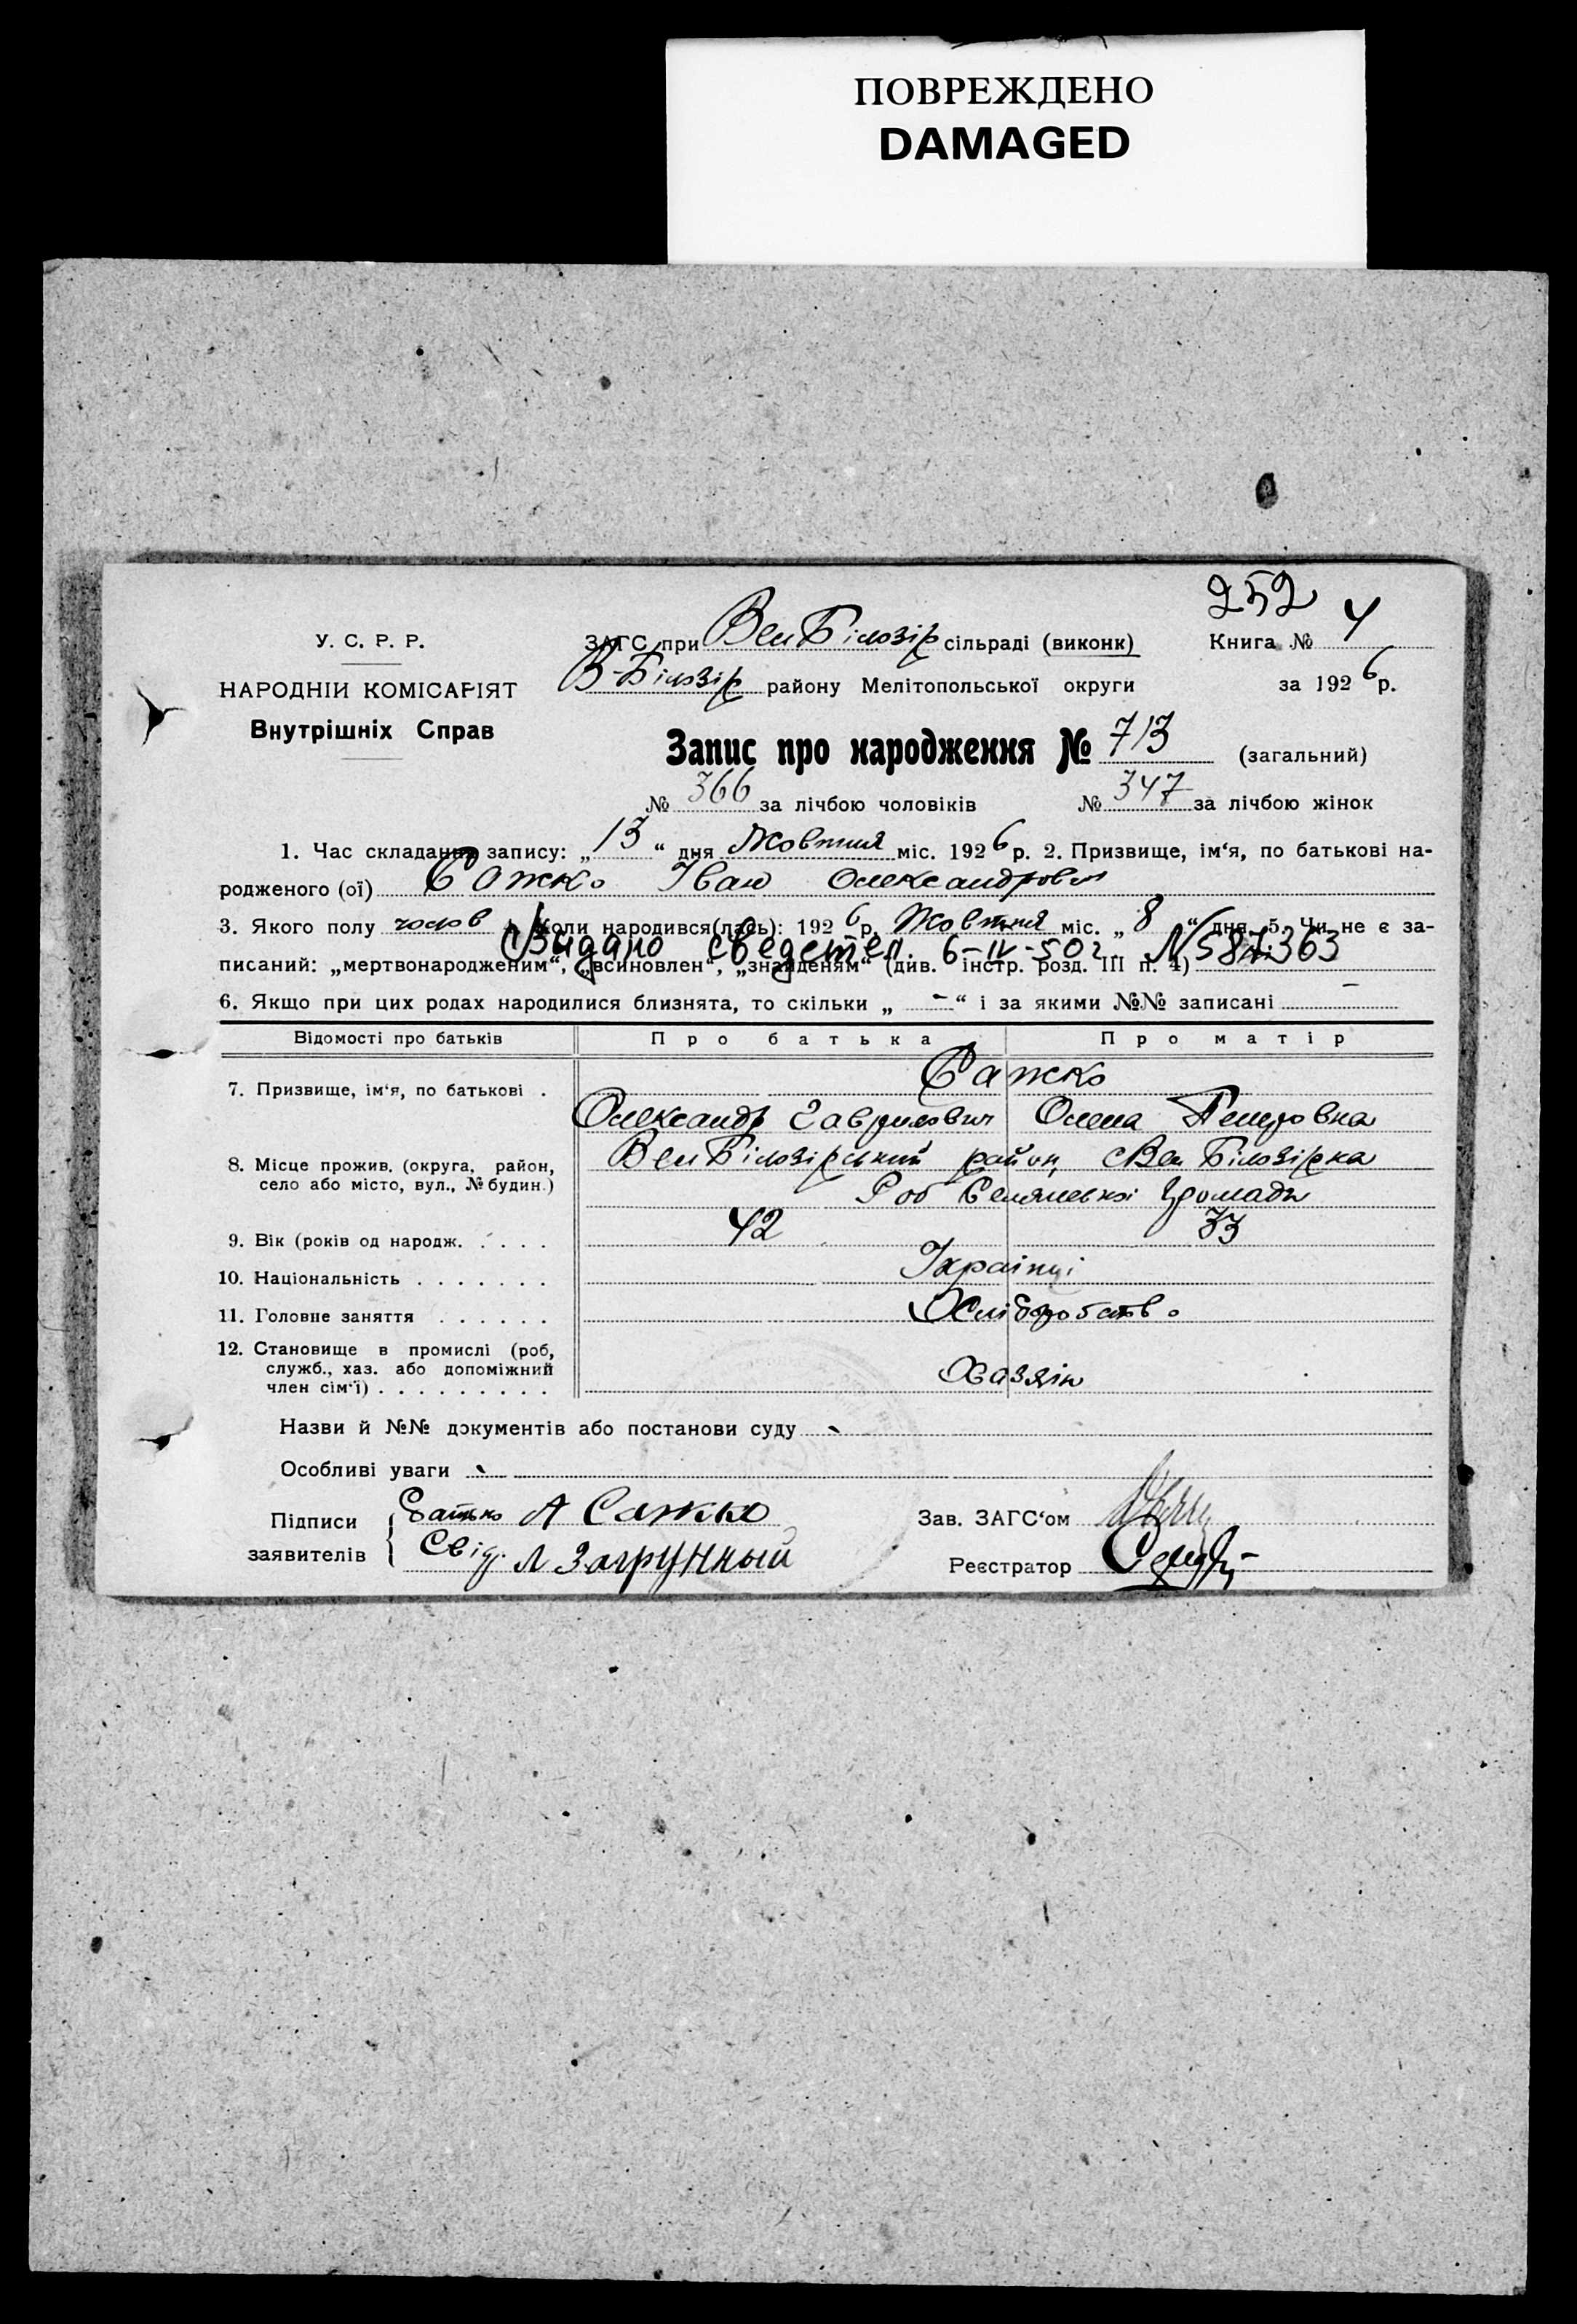 ПОВРЕЖДЕНО
DAMAGED
252
У. С. Р. Р.
ЗАГС при Вел Білозір сільраді (виконк) Книга № 4
НАРОДНІЙ КОМІСАРІЯТ
В-Білозір району Мелітопольської округи за 1926 р.
Внутрішніх Справ
Запис про народження № 713 (загальний)
№ 366 за лічбою чоловіків № 347 за лічбою жінок
1. Час складання запису: „13“ дня Жовтня міс. 1926 р. 2. Призвище, ім‘я, по батькові на-
родженого (ої) Сажко Іван Олександрович
3. Якого полу чолов 4. Коли народився(лась): 1926 р. Жовтня міс. „8“ дня. 5. Чи не є за-
Видано сведетел. 6-IV-50 г. № 587363
писаний: „мертвонародженим“, „всиновлен“, „знайденям“ (див. інстр. розд. III п. 4)
6. Якщо при цих родах народилися близнята, то скільки „ - “ і за якими №№ записані -
Відомості про батьків Про батька Про матір
7. Призвище, ім‘я, по батькові . Сажко
Олександр Гаврилович Олена Петровна
8. Місце прожив. (округа, район, село або місто, вул., № будин.) Вел Білозірський район, с Вел Білозірка
Роб Селянської громади
9. Вік (років од народж. . . . . 42 33
10. Національність . . . . . . . Українці
11. Головне заняття . . . . . . Хліборобство
12. Становище в промислі (роб,
служб., хаз. або допоміжний
член сім‘ї) . . . . . . . . . Хазяїн
Назви й №№ документів або постанови суду
Особливі уваги
Підписи заявителів { Батько А Сажко
Свід. Л Загрунный
Зав. ЗАГС‘ом
Реєстратор